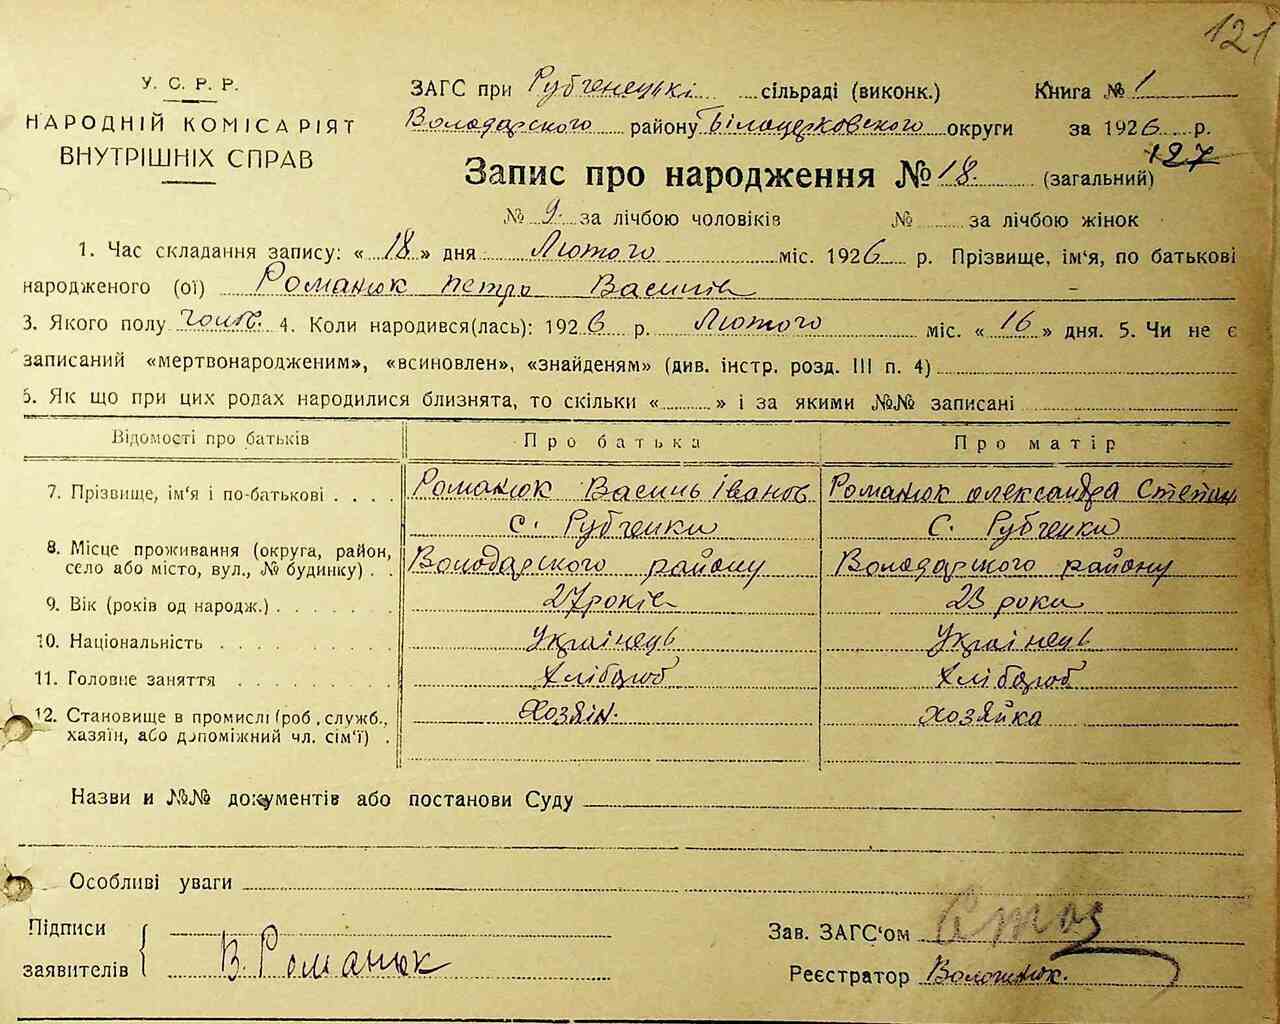 121
У. С. Р. Р.
НАРОДНІЙ КОМІСАРІЯТ
ВНУТРІШНІХ СПРАВ
ЗАГС при Рубченецькі сільраді (виконк.) Книга № 1
Володарского району Білоцерковского округи за 1926 р.
127
Запис про народження № 18. (загальний)
№ 9. за лічбою чоловіків № за лічбою жінок
1. Час складання запису: « 18 » дня Лютого міс. 1926 р. Прізвище, ім'я, по батькові
народженого (ої) Романюк Петро Василів
3. Якого полу чолов. 4. Коли народився(лась): 1926 р. Лютого міс. « 16 » дня. 5. Чи не є
записаний «мертвонародженим», «всиновлен», «знайденям» (див. інстр. розд. III п. 4)
6. Як що при цих родах народилися близнята, то скільки « » і за якими №№ записані
Відомості про батьків Про батька Про матір
7. Прізвище, ім'я і по-батькові . . . . Романюк Василь Іванов Романюк Олександра Степан
с. Рубченки с. Рубченки
8. Місце проживання (округа, район,
село або місто, вул., № будинку) . . Володарского району Володарского району
9. Вік (років од народж.) . . . . . . . 27 років 23 роки
10. Національність . . . . . . . . . Українець Українець
11. Головне заняття . . . . . . . . Хлібороб Хлібороб
12. Становище в промислі (роб., служб., Хозяін. Хозяйка
хазяїн, або допоміжний чл. сім'ї) .
Назви и №№ документів або постанови Суду
Особливі уваги
Підписи
заявителів В. Романюк
Зав. ЗАГС'ом
Реєстратор Волошнюк.